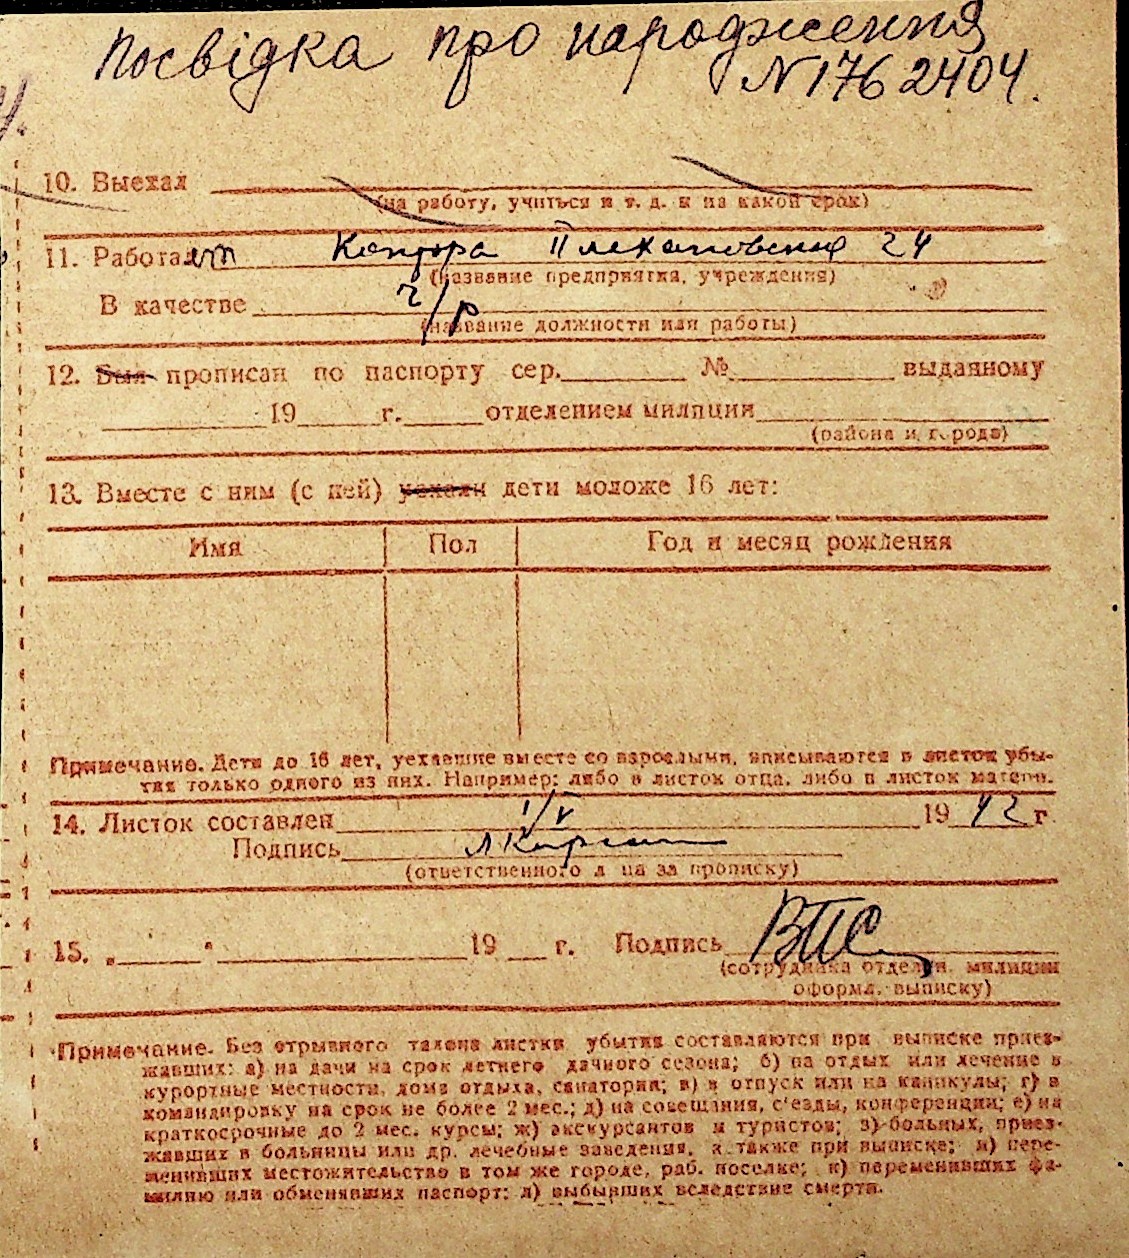 Посвідка про народження
N 1762404.
10. Выехал
(на работу, учиться и т. д. и на какой срок)
11. Работает Контора Плехановская 24
(название предприятия, учреждения)
В качестве ч/р
(название должности или работы)
12. Был прописан по паспорту сер. № выданному
19 г. отделением милиции
(района и города)
13. Вместе с ним (с ней) уехали дети моложе 16 лет:
Имя Пол Год и месяц рождения
Примечание. Дети до 16 лет, уехавшие вместе со взрослыми, вписываются в листок убы-
тия только одного из них. Например: либо в листок отца, либо в листок матери.
14. Листок составлен 1/V 1942 г.
Подпись
(ответственного лица за прописку)
15. „ " 19 г. Подпись
(сотрудника отделен. милиции
оформл. выписку)
Примечание. Без отрывного талона листки убытия составляются при выписке приез-
жавших: а) на дачи на срок летнего дачного сезона; б) на отдых или лечение в
курортные местности, дома отдыха, санатории; в) в отпуск или на каникулы; г) в
командировку на срок не более 2 мес.; д) на совещания, с'езды, конференции; е) на
краткосрочные до 2 мес. курсы; ж) экскурсантов и туристов; з) больных, приез-
жавших в больницы или др. лечебные заведения, а также при выписке; и) пере-
менивших местожительство в том же городе, раб. поселке; к) переменивших фа-
милию или обменявших паспорт; л) выбывших вследствие смерти.